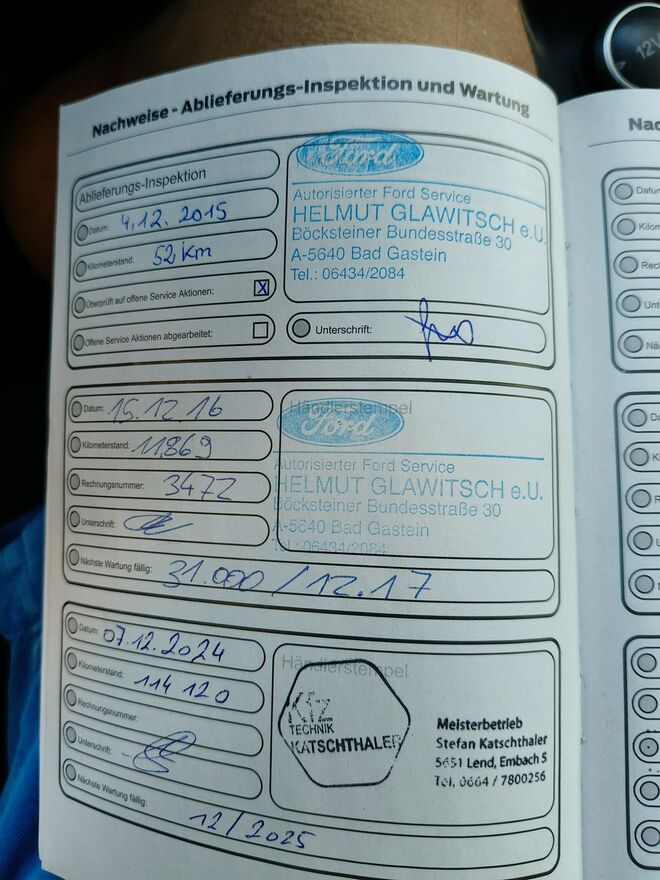 Nachweise - Ablieferungs-Inspektion und Wartung
Ablieferungs-Inspektion
Datum: 4.12.2015
Kilometerstand: 52 Km
Überprüft auf offene Service Aktionen: X
Offene Service Aktionen abgearbeitet:
Ford
Autorisierter Ford Service
HELMUT GLAWITSCH e.U.
Böcksteiner Bundesstraße 30
A-5640 Bad Gastein
Tel.: 06434/2084
Unterschrift:
Datum: 15.12.16
Kilometerstand: 11869
Rechnungsnummer: 3472
Unterschrift:
Nächste Wartung fällig: 31.000 / 12.17
Händlerstempel
Ford
Autorisierter Ford Service
HELMUT GLAWITSCH e.U.
Böcksteiner Bundesstraße 30
A-5640 Bad Gastein
Tel.: 06434/2084
Datum: 07.12.2024
Kilometerstand: 114 120
Rechnungsnummer:
Unterschrift:
Nächste Wartung fällig:
12/2025
Händlerstempel
Kfz
TECHNIK
KATSCHTHALER
Meisterbetrieb
Stefan Katschthaler
5651 Lend, Embach 5
Tel. 0664 / 7800256
12V
Nac
Datu
Kilon
Rec
Unt
Nä
Da
Ki
R
U